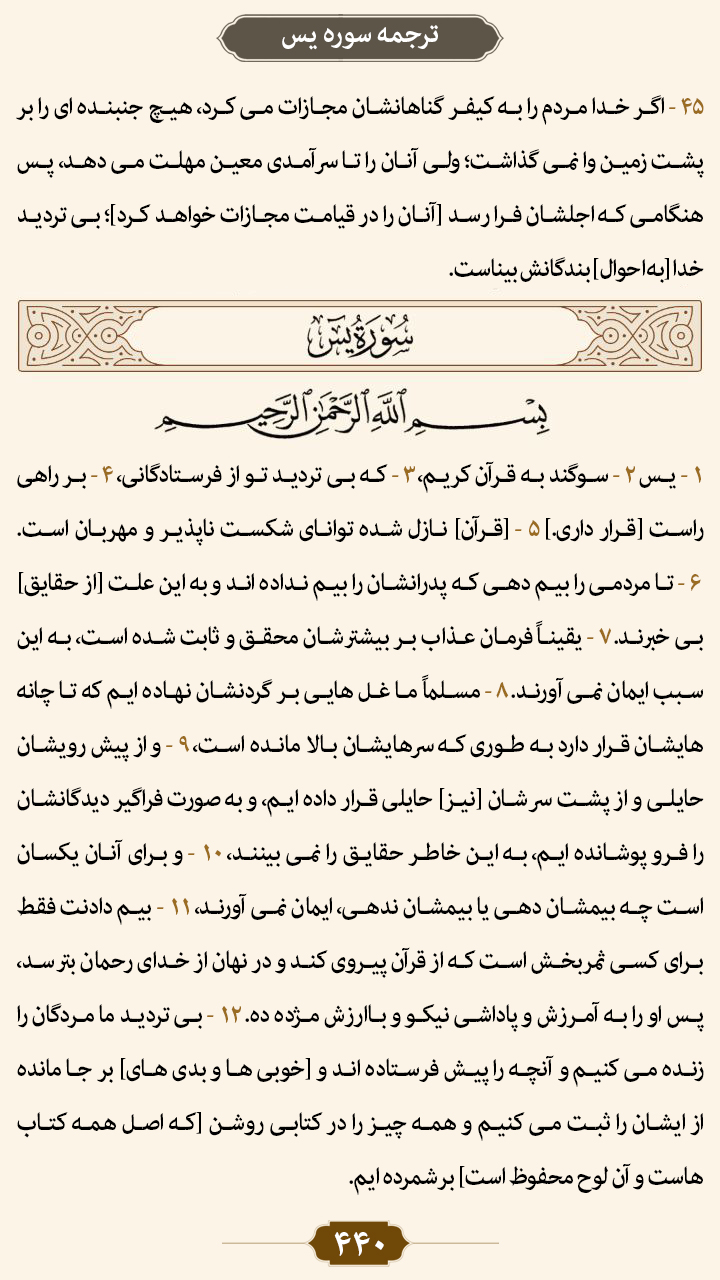 ترجمه سوره یس
۴۵ - اگر خدا مردم را به کیفر گناهانشان مجازات می کرد، هیچ جنبنده ای را بر
پشت زمین وا نمی گذاشت؛ ولی آنان را تا سرآمدی معین مهلت می دهد، پس
هنگامی که اجلشان فرا رسد [آنان را در قیامت مجازات خواهد کرد]؛ بی تردید
خدا [به احوال] بندگانش بیناست.
سُورَةُ يسٓ
بِسْمِ ٱللَّهِ ٱلرَّحْمَٰنِ ٱلرَّحِيمِ
۱ - یس ۲ - سوگند به قرآن کریم، ۳ - که بی تردید تو از فرستادگانی، ۴ - بر راهی
راست [قرار داری.] ۵ - [قرآن] نازل شده توانای شکست ناپذیر و مهربان است.
۶ - تا مردمی را بیم دهی که پدرانشان را بیم نداده اند و به این علت [از حقایق]
بی خبرند. ۷ - یقیناً فرمان عذاب بر بیشترشان محقق و ثابت شده است، به این
سبب ایمان نمی آورند. ۸ - مسلماً ما غل هایی بر گردنشان نهاده ایم که تا چانه
هایشان قرار دارد به طوری که سرهایشان بالا مانده است، ۹ - و از پیش رویشان
حایلی و از پشت سرشان [نیز] حایلی قرار داده ایم، و به صورت فراگیر دیدگانشان
را فرو پوشانده ایم، به این خاطر حقایق را نمی بینند، ۱۰ - و برای آنان یکسان
است چه بیمشان دهی یا بیمشان ندهی، ایمان نمی آورند، ۱۱ - بیم دادنت فقط
برای کسی ثمربخش است که از قرآن پیروی کند و در نهان از خدای رحمان بترسد،
پس او را به آمرزش و پاداشی نیکو و باارزش مژده ده. ۱۲ - بی تردید ما مردگان را
زنده می کنیم و آنچه را پیش فرستاده اند و [خوبی ها و بدی های] بر جا مانده
از ایشان را ثبت می کنیم و همه چیز را در کتابی روشن [که اصل همه کتاب
هاست و آن لوح محفوظ است] برشمرده ایم.
۴۴۰